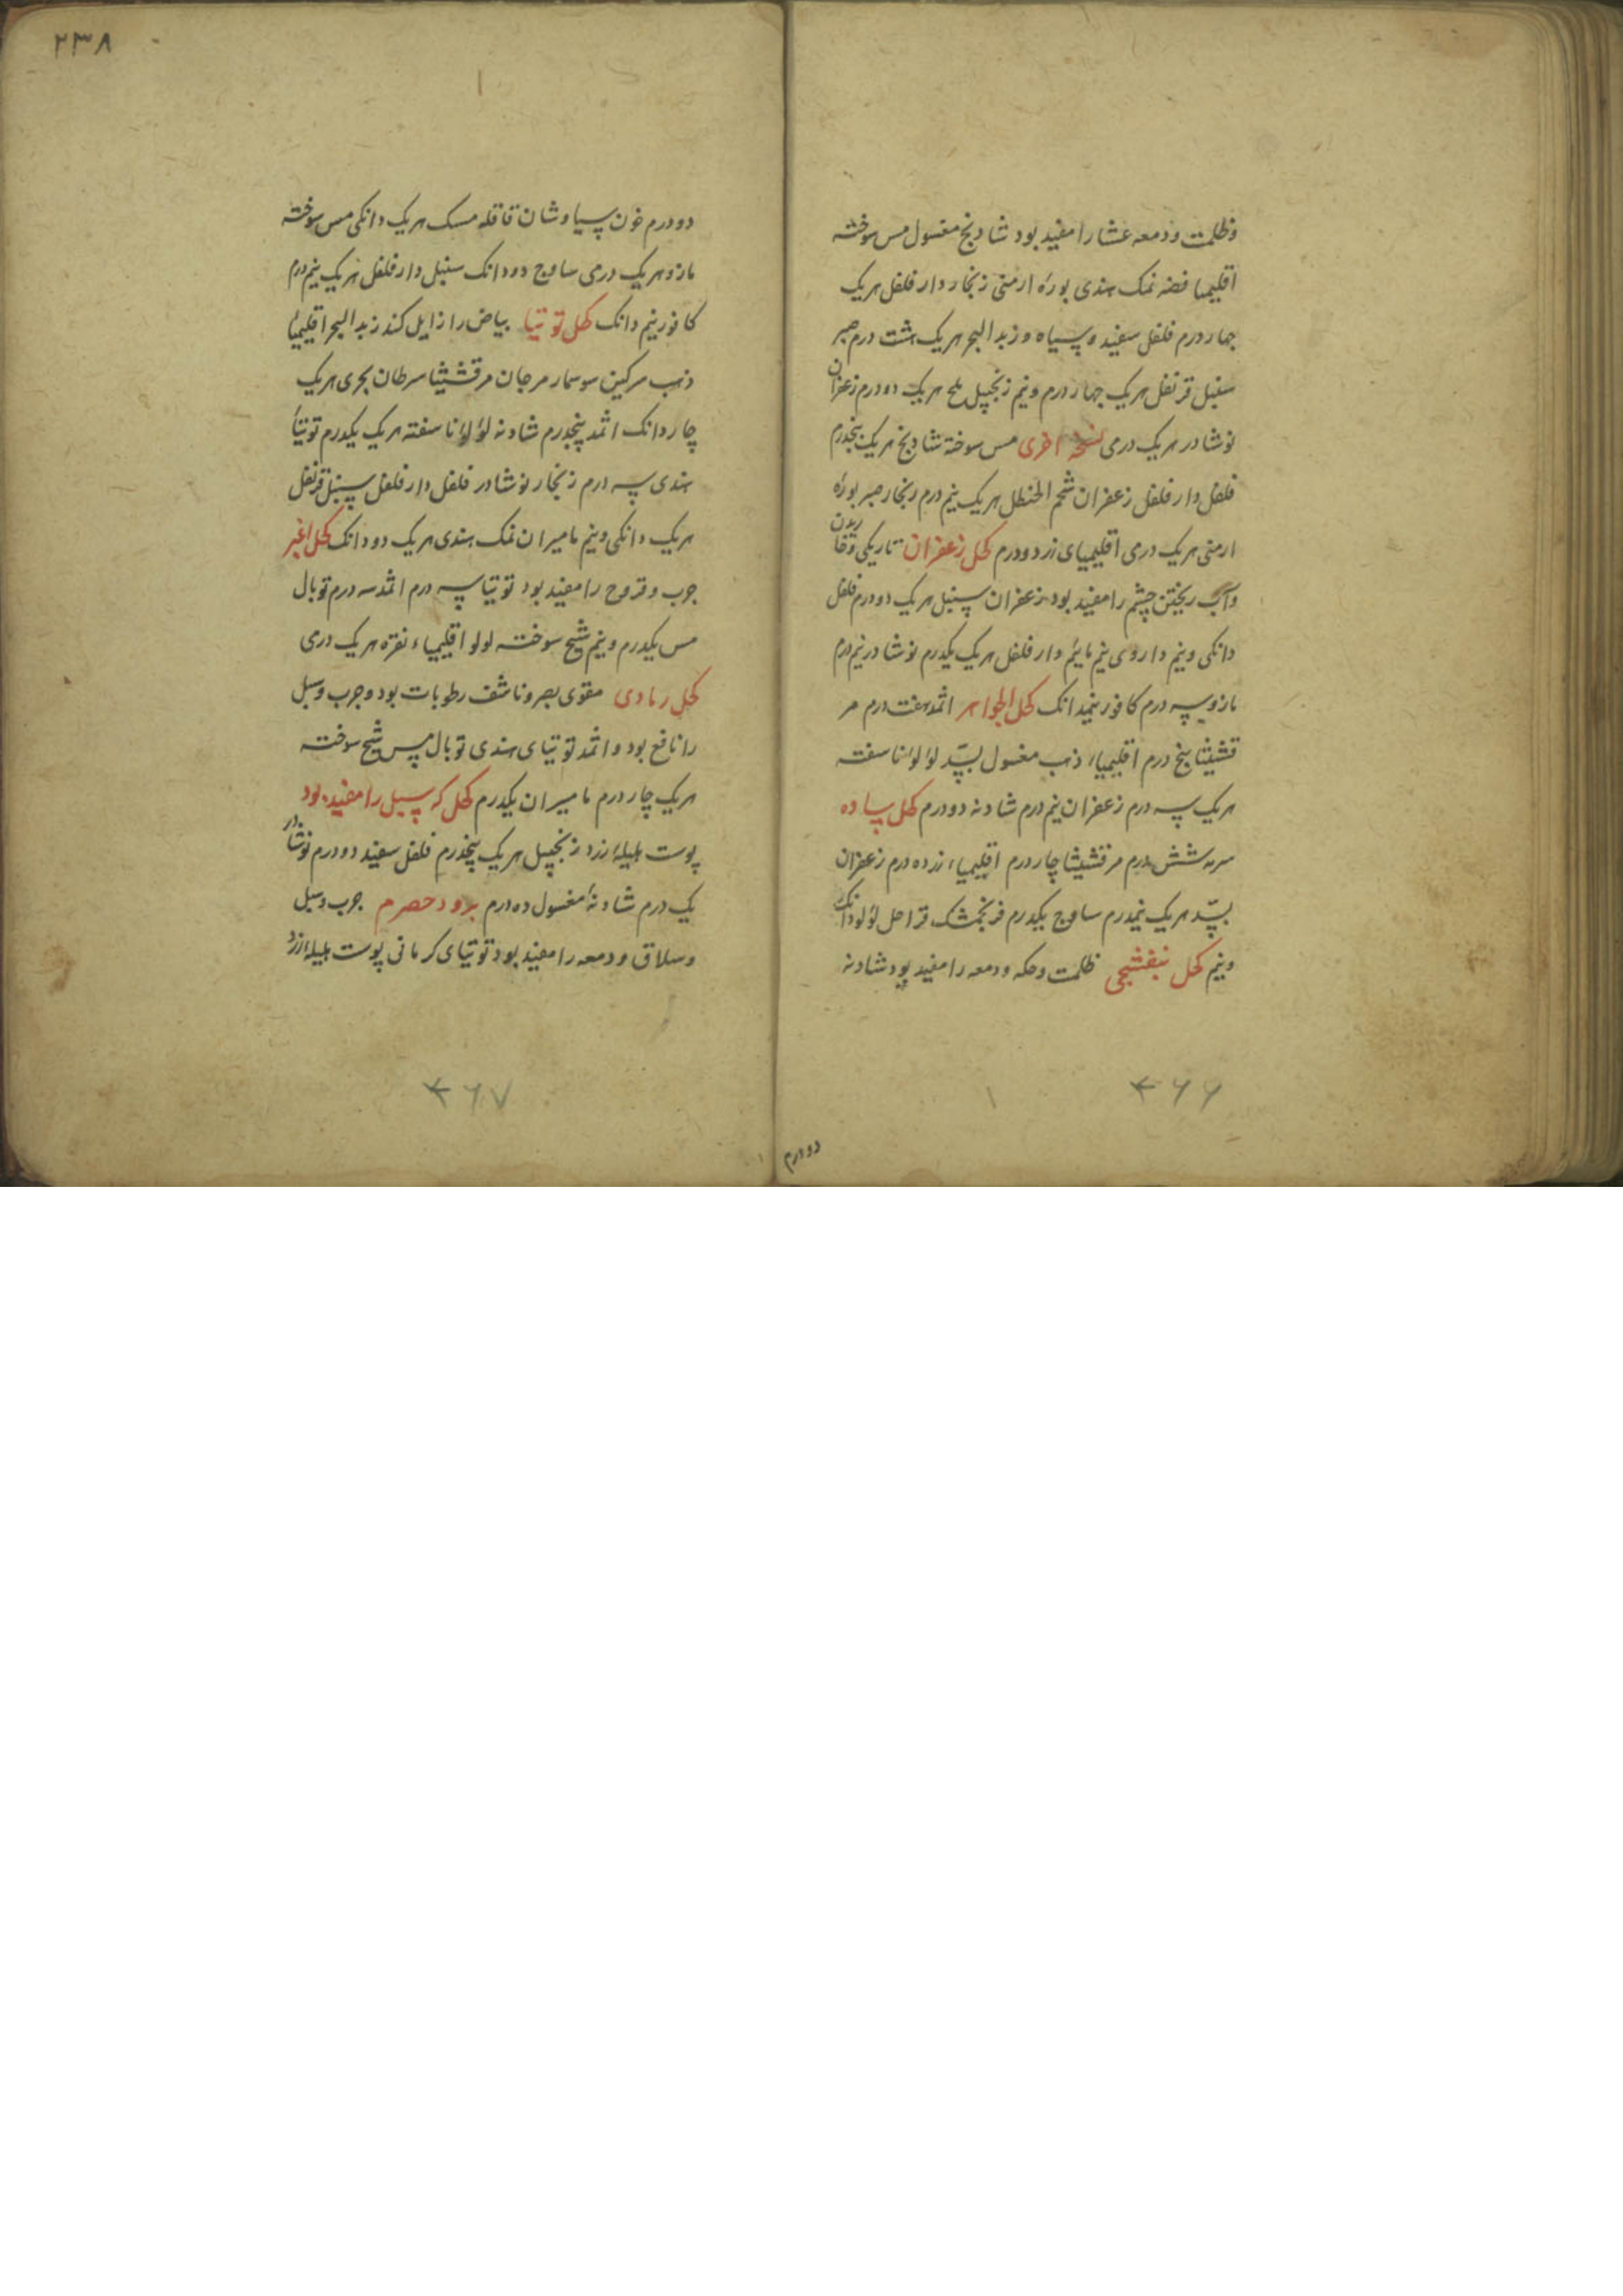 وظلمت ودمعه عشا را مفید بود شادنج مغسول مس سوخته
اقلیمیا فضه نمک هندی بورهٔ ارمنی زنجار دارفلفل هریک
چهار درم فلفل سفید وسیاه وزبد البحر هریک هشت درم صبر
سنبل قرنفل هریک چهار درم ونیم زنجبیل ملح هریک دودرم زعفران
نوشادر هریک درمی نسخه اخری مس سوخته شادنج هریک پنجدرم
فلفل دارفلفل زعفران شحم الحنطل هریک نیم درم زنجار صبر بورهٔ
ارمنی هریک درمی اقلیمیای زر دودرم کحل زعفران تاریکی وخاریدن
وآب ریختن چشم را مفید بود زعفران سنبل هریک دودرم فلفل
دانکی ونیم داروی نیم دارفلفل هریک یکدرم نوشادر نیم درم
مازو سه درم کافور نیمدانک کحل الجواهر اثمد هفت درم مر
قشیثا پنج درم اقلیمیاء ذهب مغسول بسّد لؤلؤ ناسفته
هریک سه درم زعفران نیم درم شادنه دودرم کحل ساده
سرمه شش درم مرقشیثا چاردرم اقلیمیاء زر ده درم زعفران
بسّد هریک نیمدرم ساوج یکدرم فرنجمشک لؤلؤ دانک
ونیم کحل بنفشجی ظلمت وحکه ودمعه را مفید بود شادنه
دودرم
۴۶۶
۲۳۸
دودرم خون سیاوشان قاقله مسک هریک دانکی مس سوخته
مازو هریک درمی ساوج دودانک سنبل دارفلفل هریک نیم درم
کافور نیم دانک کحل توتیا بیاض را زایل کند زبد البحر اقلیمیاء
ذهب سرکین سوسمار مرجان مرقشیثا سرطان بحری هریک
چاردانک اثمد پنجدرم شادنه لؤلؤ ناسفته هریک یکدرم توتیاء
هندی سه درم زنجار نوشادر فلفل دارفلفل سنبل قرنفل
هریک دانکی ونیم مامیران نمک هندی هریک دودانک کحل اغبر
جرب وقروح را مفید بود توتیا سه درم اثمد سه درم توبال
مس یکدرم ونیم شیح سوخته لولو اقلیمیاء نقره هریک درمی
کحل رمادی مقوی بصر وناشف رطوبات بود وجرب وسبل
را نافع بود واثمد توتیای هندی توبال مس شیح سوخته
هریک چاردرم مامیران یکدرم کحل که سبل را مفید بود
پوست هلیلهٔ زرد زنجبیل هریک پنجدرم فلفل سفید دودرم نوشادر
یک درم شادنهٔ مغسول ده درم برود حصرم جرب وسبل
وسلاق ودمعه را مفید بود توتیای کرمانی پوست هلیلهٔ زرد
۴۶۷